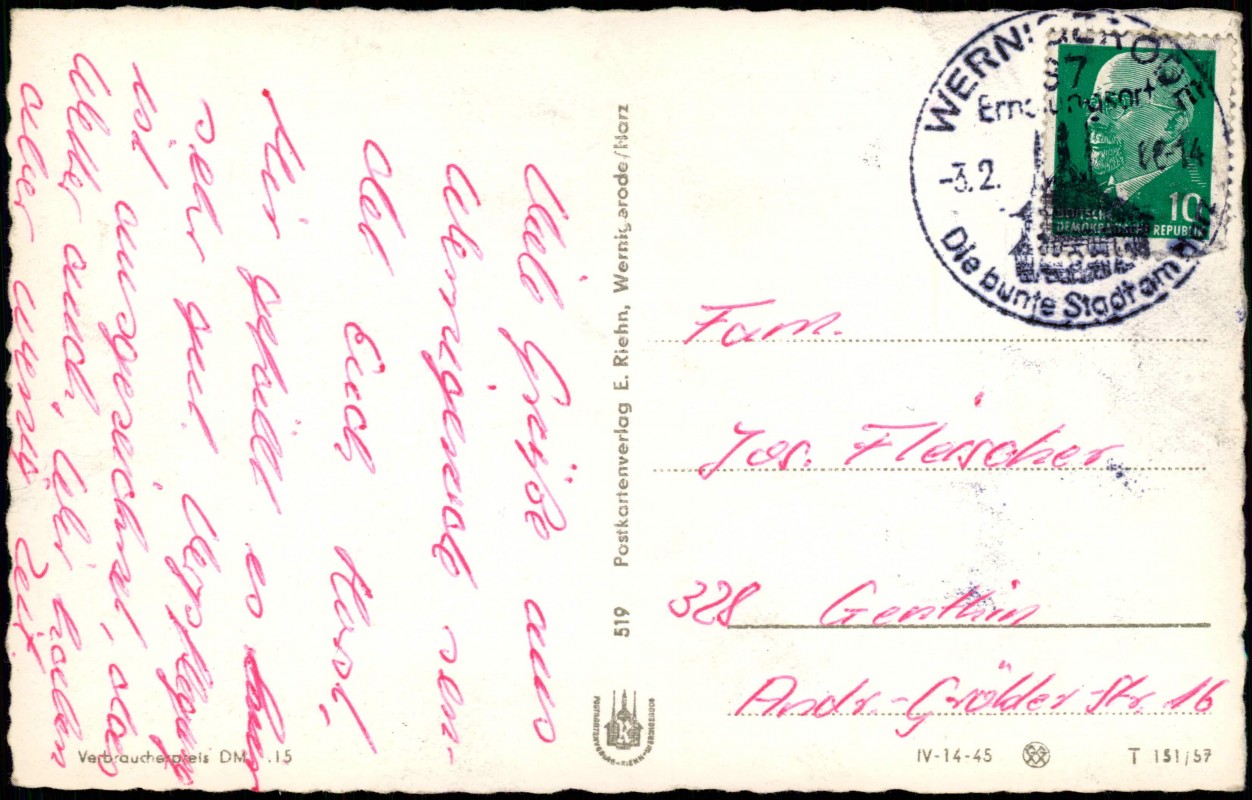 Viele Grüße aus
Wernigerode sen-
det Euch Horst.
Hier gefällt es
sehr gut Verpflegung
ist ausgezeichnet, das
Wetter auch, Wir haben
aber wenig Zeit
Verbraucherpreis DM .15
519 Postkartenverlag E. Riehn, Wernigerode/Harz
POSTKARTENVERLAG-RIEHN-WERNIGERODE
WERNIGERODE
Erholungsort
-3.2. -14
Die bunte Stadt am Harz
10
DEUTSCHE
DEMOKRATISCHE REPUBLIK
Fam.
Jos. Fleischer
328 Genthin
Andr.-Gröder-Str. 16
IV-14-45 T 151/57